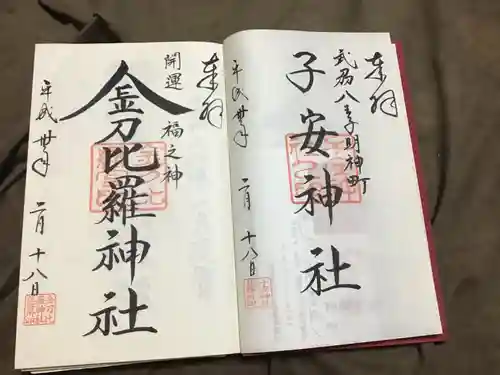 奉拝
武州八王子明神町
子安神社
平成卅年
二月十八日
奉拝
開運
福之神
金刀比羅神社
平成卅年
二月十八日